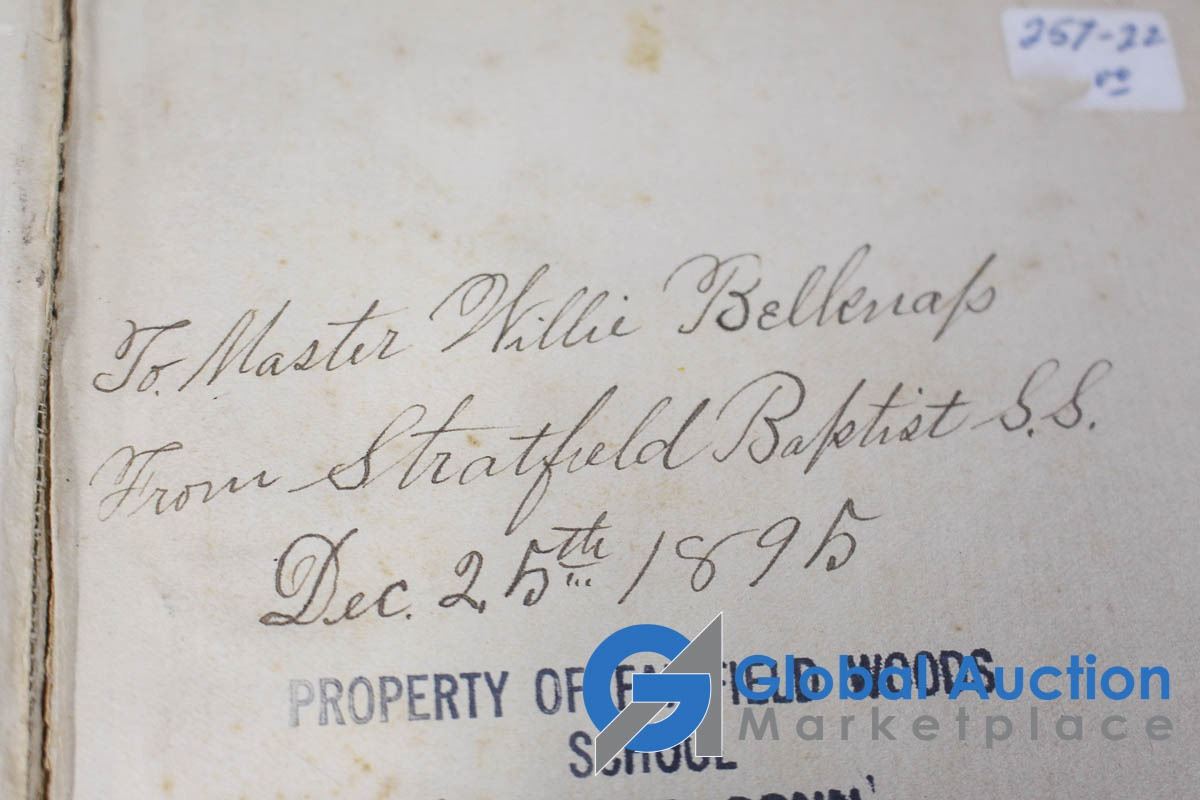 257-22
00
To. Master Willie Bellknap
From Stratfield Baptist S.S.
Dec. 25th 1895
PROPERTY OF FAIRFIELD WOODS
SCHOOL
Global Auction
Marketplace